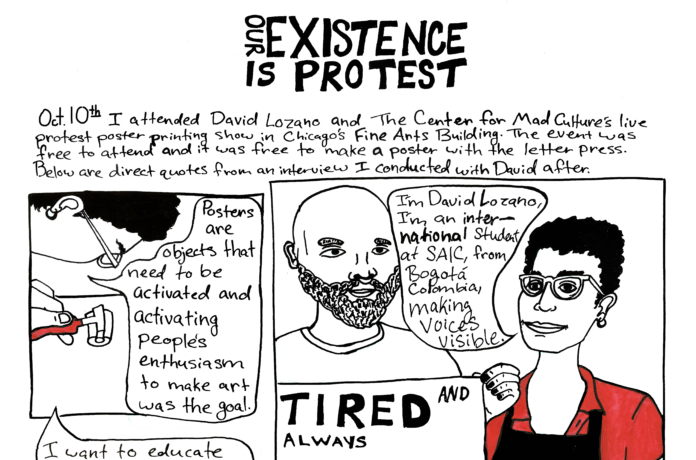 OUR EXISTENCE
IS PROTEST
Oct. 10th I attended David Lozano and The Center for Mad Culture's live
protest poster printing show in Chicago's Fine Arts Building. The event was
free to attend and it was free to make a poster with the letter press.
Below are direct quotes from an interview I conducted with David after.
Posters
are
objects that
need to be
activated and
activating
people's
enthusiasm
to make art
was the goal.
I'm David Lozano,
I'm an inter-
national student
at SAIC, from
Bogotá
Colombia,
making
voices
visible.
TIRED AND
ALWAYS
I want to educate